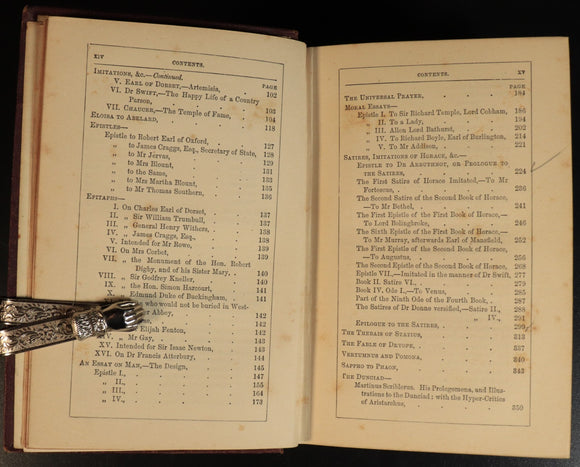 xiv
CONTENTS.
IMITATIONS, &c.—Continued.
PAGE
V. EARL OF DORSET,—Artemisia, 102
VI. DR SWIFT,—The Happy Life of a Country
Parson, 103
VII. CHAUCER,—The Temple of Fame, 104
ELOISA TO ABELARD, 118
EPISTLES—
Epistle to Robert Earl of Oxford, 127
„ to James Craggs, Esq., Secretary of State, 128
„ to Mr Jervas, 128
„ to Mrs Blount, 131
„ to the Same,
„ to Mrs Martha Blount,
„ to Mr Thomas Southern, 136
EPITAPHS—
I. On Charles Earl of Dorset, 137
II. „ Sir William Trumball, 138
III. „ General Henry Withers, 138
IV. „ James Craggs, Esq., 138
V. Intended for Mr Rowe, 139
VI. On Mrs Corbet, 139
VII. „ the Monument of the Hon. Robert
Digby, and of his Sister Mary, 140
VIII. „ Sir Godfrey Kneller, 140
IX. „ the Hon. Simon Harcourt, 141
X. „ Edmund Duke of Buckingham, 141
who would not be buried in West-
Abbey, 142
291
Elijah Fenton, 292
XV. „ Mr Gay, 143
XV. Intended for Sir Isaac Newton, 144
XVI. On Dr Francis Atterbury, 144
AN ESSAY ON MAN,—The Design, 145
Epistle I., 147
„ II., 155
„ III., 164
„ IV., 173
CONTENTS.
xv
PAGE
THE UNIVERSAL PRAYER, 184
MORAL ESSAYS—
Epistle I. To Sir Richard Temple, Lord Cobham, 186
„ II. To a Lady, 194
„ III. Allen Lord Bathurst, 202
„ IV. To Richard Boyle, Earl of Burlington, 214
„ V. To Mr Addison, 221
SATIRES, IMITATIONS OF HORACE, &c.—
EPISTLE TO DR ARBUTHNOT, OR PROLOGUE TO
THE SATIRES, 224
The First Satire of Horace Imitated,—To Mr
Fortescue, 236
The Second Satire of the Second Book of Horace,
—To Mr Bethel, 241
The First Epistle of the First Book of Horace,—
To Lord Bolingbroke, 246
The Sixth Epistle of the First Book of Horace,—
To Mr Murray, afterwards Earl of Mansfield, 252
The First Epistle of the Second Book of Horace,
—To Augustus, 256
The Second Epistle of the Second Book of Horace, 268
Epistle VII.,—Imitated in the manner of Dr Swift, 277
Book II. Satire VI., 279
Book IV. Ode I.,—To Venus, 285
Part of the Ninth Ode of the Fourth Book, 287
The Satires of Dr Donne versified,—Satire II., 288
„ IV., 291
EPILOGUE TO THE SATIRES, 299
THE THEBAIS OF STATIUS, 313
THE FABLE OF DRYOPE, 337
VERTUMNUS AND POMONA, 340
SAPPHO TO PHAON, 343
THE DUNCIAD—
Martinus Scriblerus. His Prolegomena, and Illus-
trations to the Dunciad: with the Hyper-Critics
of Aristarchus, 350